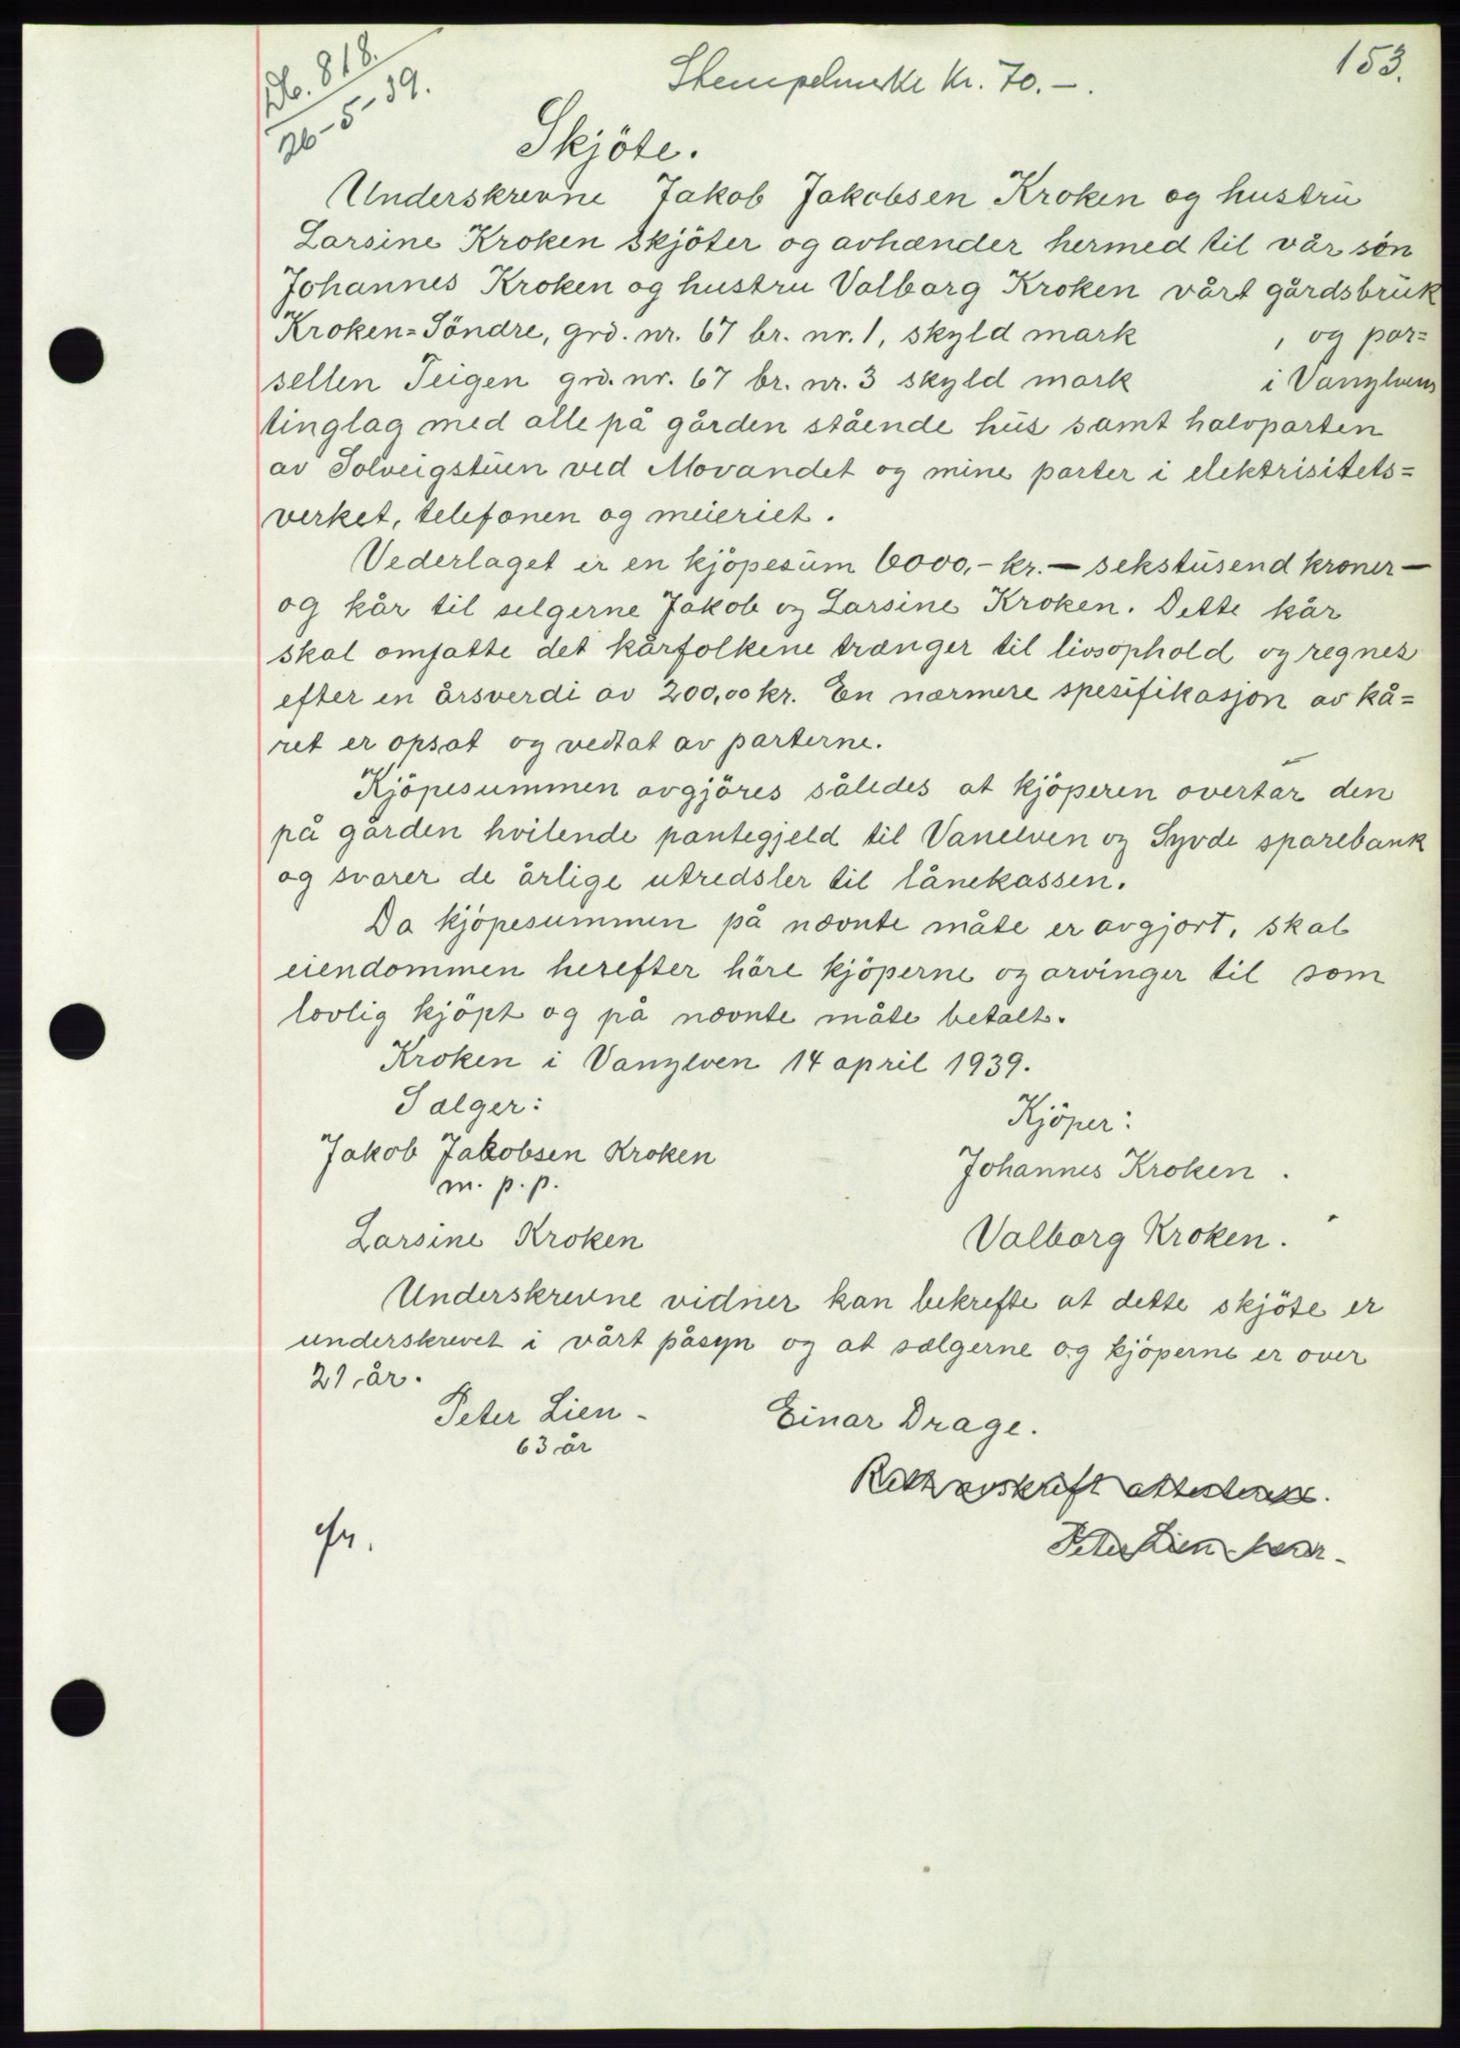 Db. 818.
26-5-39.
Stempelmerke kr. 70.-.
153.
Skjöte.
Underskrevne Jakob Jakobsen Kroken og hustru
Larsine Kroken skjöter og avhænder hermed til vår sön
Johannes Kroken og hustru Valborg Kroken vårt gårdsbruk
Kroken=Söndre, grd. nr. 67 br. nr. 1, skyld mark , og par=
sellen Teigen grd. nr. 67 br. nr. 3 skyld mark i Vanylvens
tinglag med alle på gården stående hus samt halvparten
av Solveigstuen ved Movandet og mine parter i elektrisitets=
verket, telefonen og meieriet.
Vederlaget er en kjöpesum 6000,- kr. — sekstusend kroner —
og kår til selgerne Jakob og Larsine Kroken. Dette kår
skal omfatte det kårfolkene trænger til livsophold og regnes
efter en årsverdi av 200,00 kr. En nærmere spesifikasjon av kå=
ret er opsat og vedtat av parterne.
Kjöpesummen avgjöres således at kjöperen overtar den
på gården hvilende pantegjeld til Vanelven og Syvde sparebank
og svarer de årlige utredsler til lånekassen.
Da kjöpesummen på nævnte måte er avgjort, skal
eiendommen herefter höre kjöperne og arvinger til som
lovlig kjöpt og på nævnte måte betalt.
Kroken i Vanylven 14 april 1939.
Sælger:
Kjöper:
Jakob Jakobsen Kroken
m. p. p.
Johannes Kroken.
Larsine Kroken
Valborg Kroken.
Underskrevne vidner kan bekrefte at dette skjöte er
underskrevet i vårt påsyn og at sælgerne og kjöperne er over
21 år.
Peter Lien -
63 år
Einar Drage.
Rett avskrift attesteres.
Peter Lien